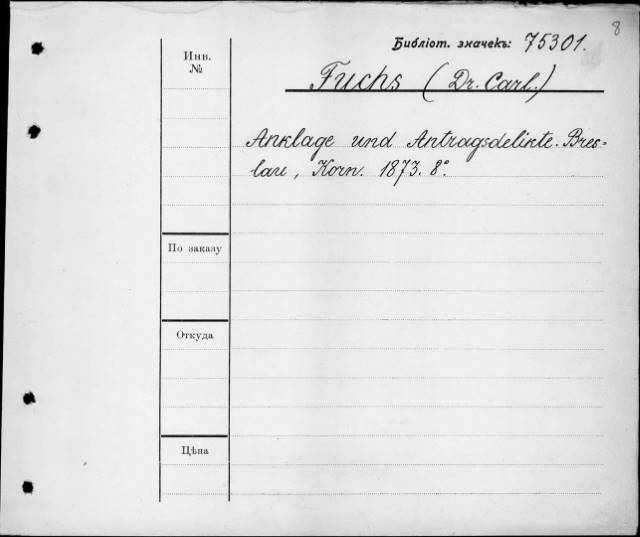 8
Библіот. значекъ: 75301.
Инв.
№
Fuchs (Dr. Carl.)
Anklage und Antragsdelikte. Bres-
lau, Korn. 1873. 8°.
По заказу
Откуда
Цѣна